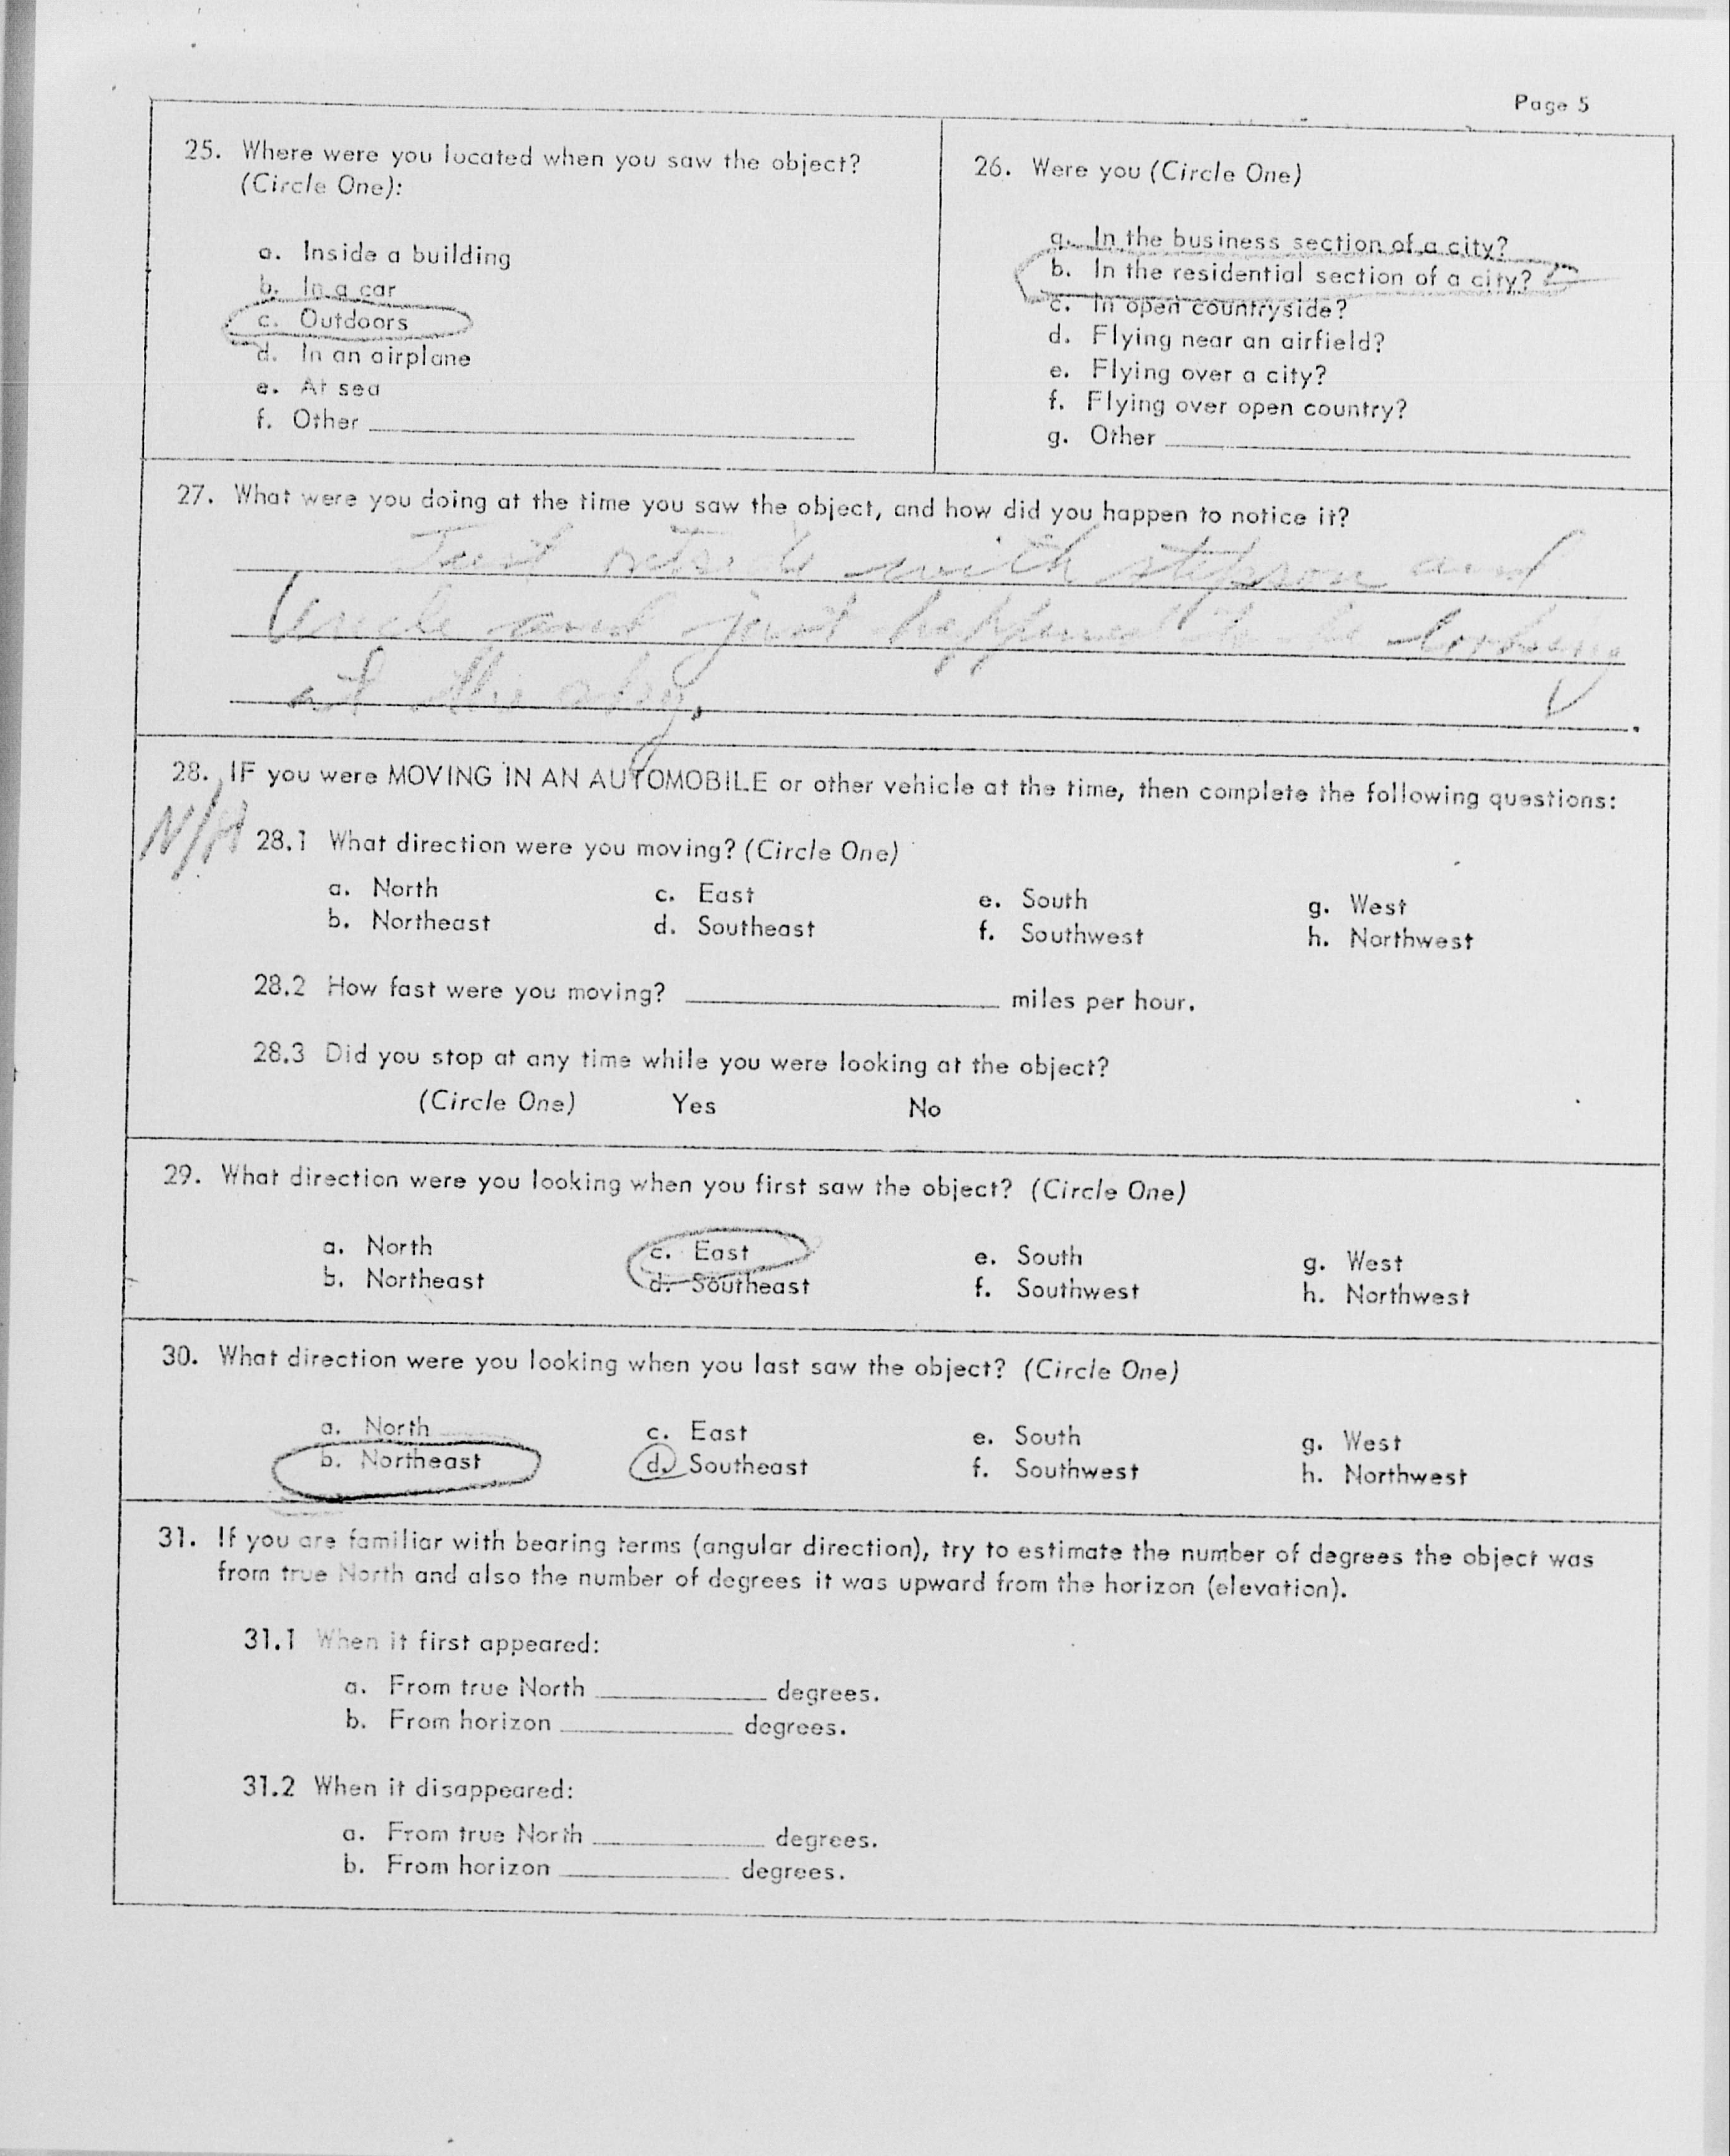 Page 5
25. Where were you located when you saw the object?
(Circle One):
a. Inside a building
b. In a car
c. Outdoors
d. In an airplane
e. At sea
f. Other
26. Were you (Circle One)
a. In the business section of a city?
b. In the residential section of a city?
c. In open countryside?
d. Flying near an airfield?
e. Flying over a city?
f. Flying over open country?
g. Other
27. What were you doing at the time you saw the object, and how did you happen to notice it?
Just outside with stepson and
Uncle and just happened to be looking
at the sky.
28. IF you were MOVING IN AN AUTOMOBILE or other vehicle at the time, then complete the following questions:
N/A
28.1 What direction were you moving? (Circle One)
a. North c. East e. South g. West
b. Northeast d. Southeast f. Southwest h. Northwest
28.2 How fast were you moving? miles per hour.
28.3 Did you stop at any time while you were looking at the object?
(Circle One) Yes No
29. What direction were you looking when you first saw the object? (Circle One)
a. North c. East e. South g. West
b. Northeast d. Southeast f. Southwest h. Northwest
30. What direction were you looking when you last saw the object? (Circle One)
a. North c. East e. South g. West
b. Northeast d. Southeast f. Southwest h. Northwest
31. If you are familiar with bearing terms (angular direction), try to estimate the number of degrees the object was
from true North and also the number of degrees it was upward from the horizon (elevation).
31.1 When it first appeared:
a. From true North degrees.
b. From horizon degrees.
31.2 When it disappeared:
a. From true North degrees.
b. From horizon degrees.